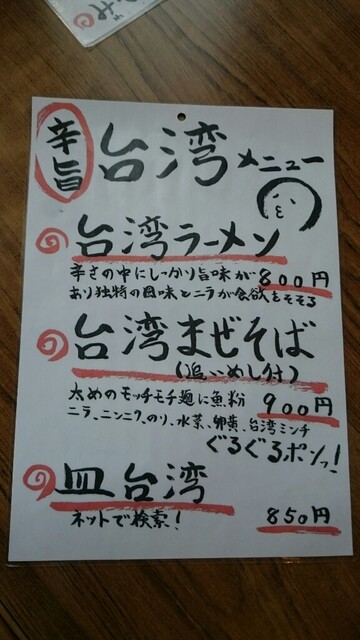 辛旨
台湾メニュー
台湾ラーメン
辛さの中にしっかり旨味が
800円
あり独特の風味とニラが食欲をそそる
台湾まぜそば
(追いめし付)
太めのモッチモチ麺に魚粉
900円
ニラ、ニンニク、のり、水菜、卵黄、台湾ミンチ
ぐるぐるポンっ!
皿台湾
ネットで検索!
850円